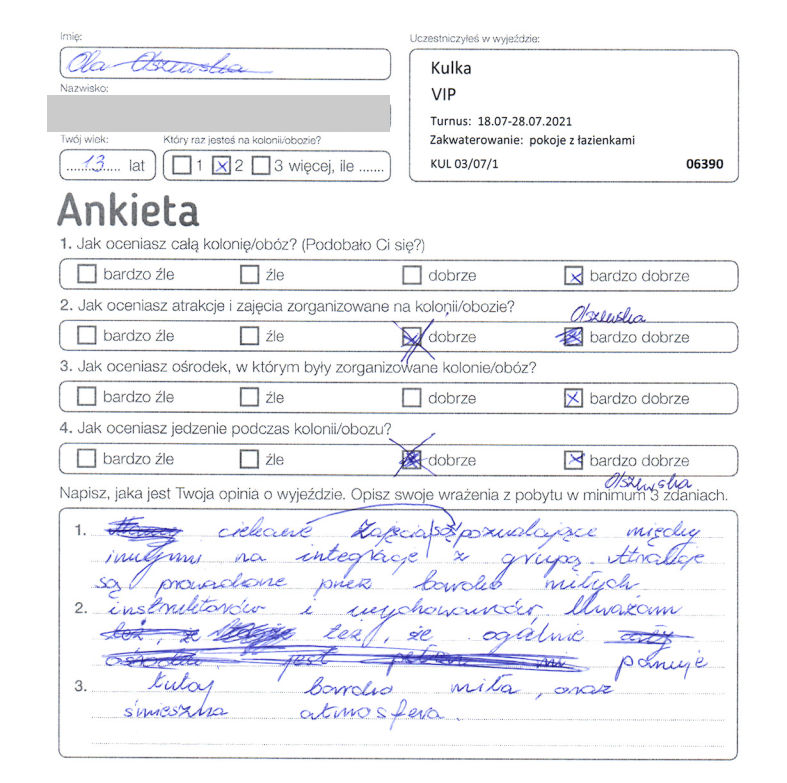 Imię:
Uczestniczyłeś w wyjeździe:
Ola Olszewska
Kulka
VIP
Nazwisko:
Turnus: 18.07-28.07.2021
Zakwaterowanie: pokoje z łazienkami
KUL 03/07/1 06390
Twój wiek: Który raz jesteś na kolonii/obozie?
13 lat 1 2 3 więcej, ile .......
Ankieta
1. Jak oceniasz całą kolonię/obóz? (Podobało Ci się?)
bardzo źle źle dobrze bardzo dobrze
2. Jak oceniasz atrakcje i zajęcia zorganizowane na kolonii/obozie?
Olszewska
bardzo źle źle dobrze bardzo dobrze
3. Jak oceniasz ośrodek, w którym były zorganizowane kolonie/obóz?
bardzo źle źle dobrze bardzo dobrze
4. Jak oceniasz jedzenie podczas kolonii/obozu?
bardzo źle źle dobrze bardzo dobrze
Olszewska
Napisz, jaka jest Twoja opinia o wyjeździe. Opisz swoje wrażenia z pobytu w minimum 3 zdaniach.
1. ciekawe zajęcia są pozwalające między
innymi na integrację z grupą. Atrakcje
są prowadzone przez bardzo miłych
2. instruktorów i wychowawców, Uważam
też, że też, że ogólnie
ośrodku, jest panuje
3. tutaj bardzo miła, oraz
śmieszna atmosfera.